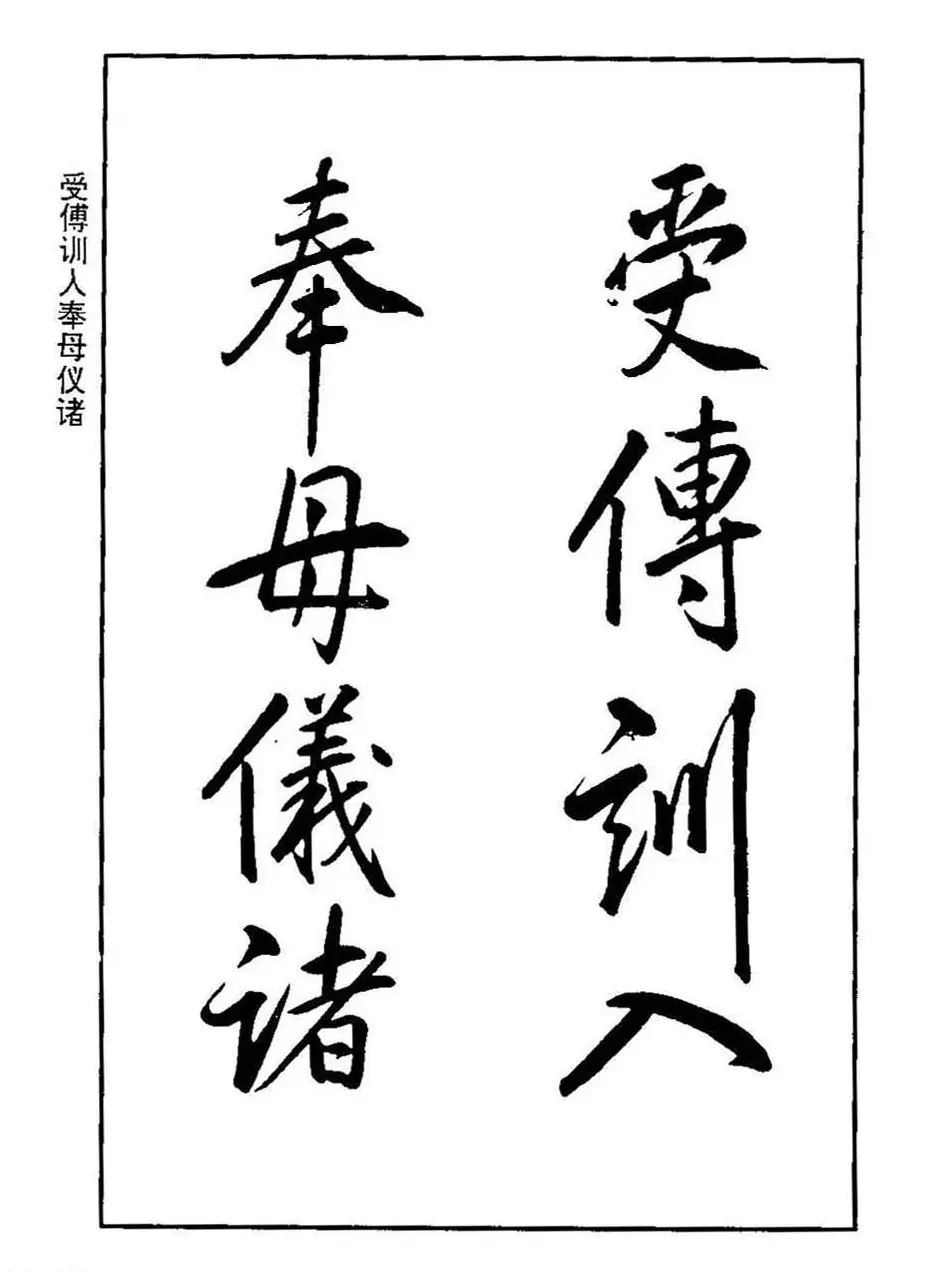 受傅訓入
奉母儀諸
受傅训人奉母仪诸